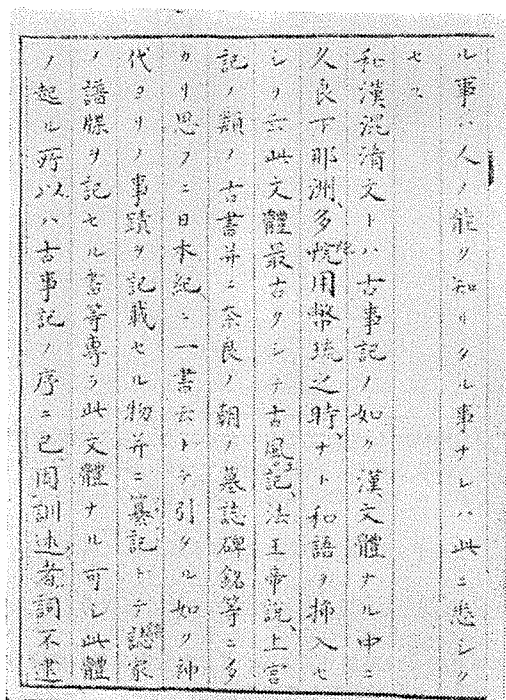 ル事ハ人ノ能ク知リタル事ナレハ此ニ悉シク
セス
和漢混淆文トハ古事記ノ如ク漢文體ナル中ニ
久良下那洲、多陀用幣琉之時、ナト和語ヲ挿入セ
シヲ云此文體最古クシテ古風土記、法王帝説、上宮
記ノ類ノ古書并ニ奈良ノ朝ノ墓誌碑銘等ニ多
カリ思フニ日本紀ニ一書云トテ引タル如ク神
代ヨリノ事蹟ヲ記載セル物并ニ纂記トテ諸家
ノ譜牒ヲ記セル書等専ラ此文體ナル可シ此體
ノ起ル所以ハ古事記ノ序ニ已因訓述者詞不逮